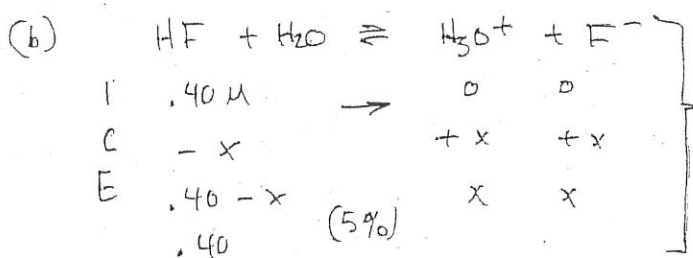 (b) HF + H2O ⇌ H3O+ + F-
I .40 M → 0 0
C - x + x + x
E .40 - x (5%) x x
.40